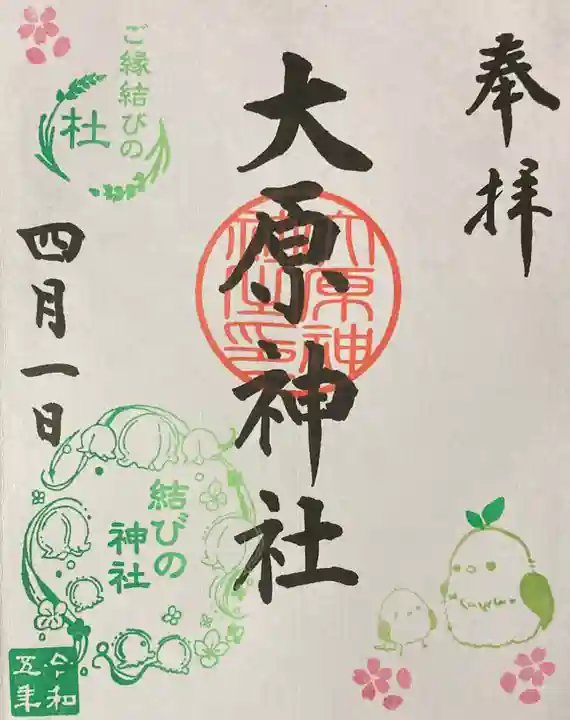 奉拝
大原神社
大原神社印
ご縁結びの
杜
四月一日
結びの
神社
令和
五年